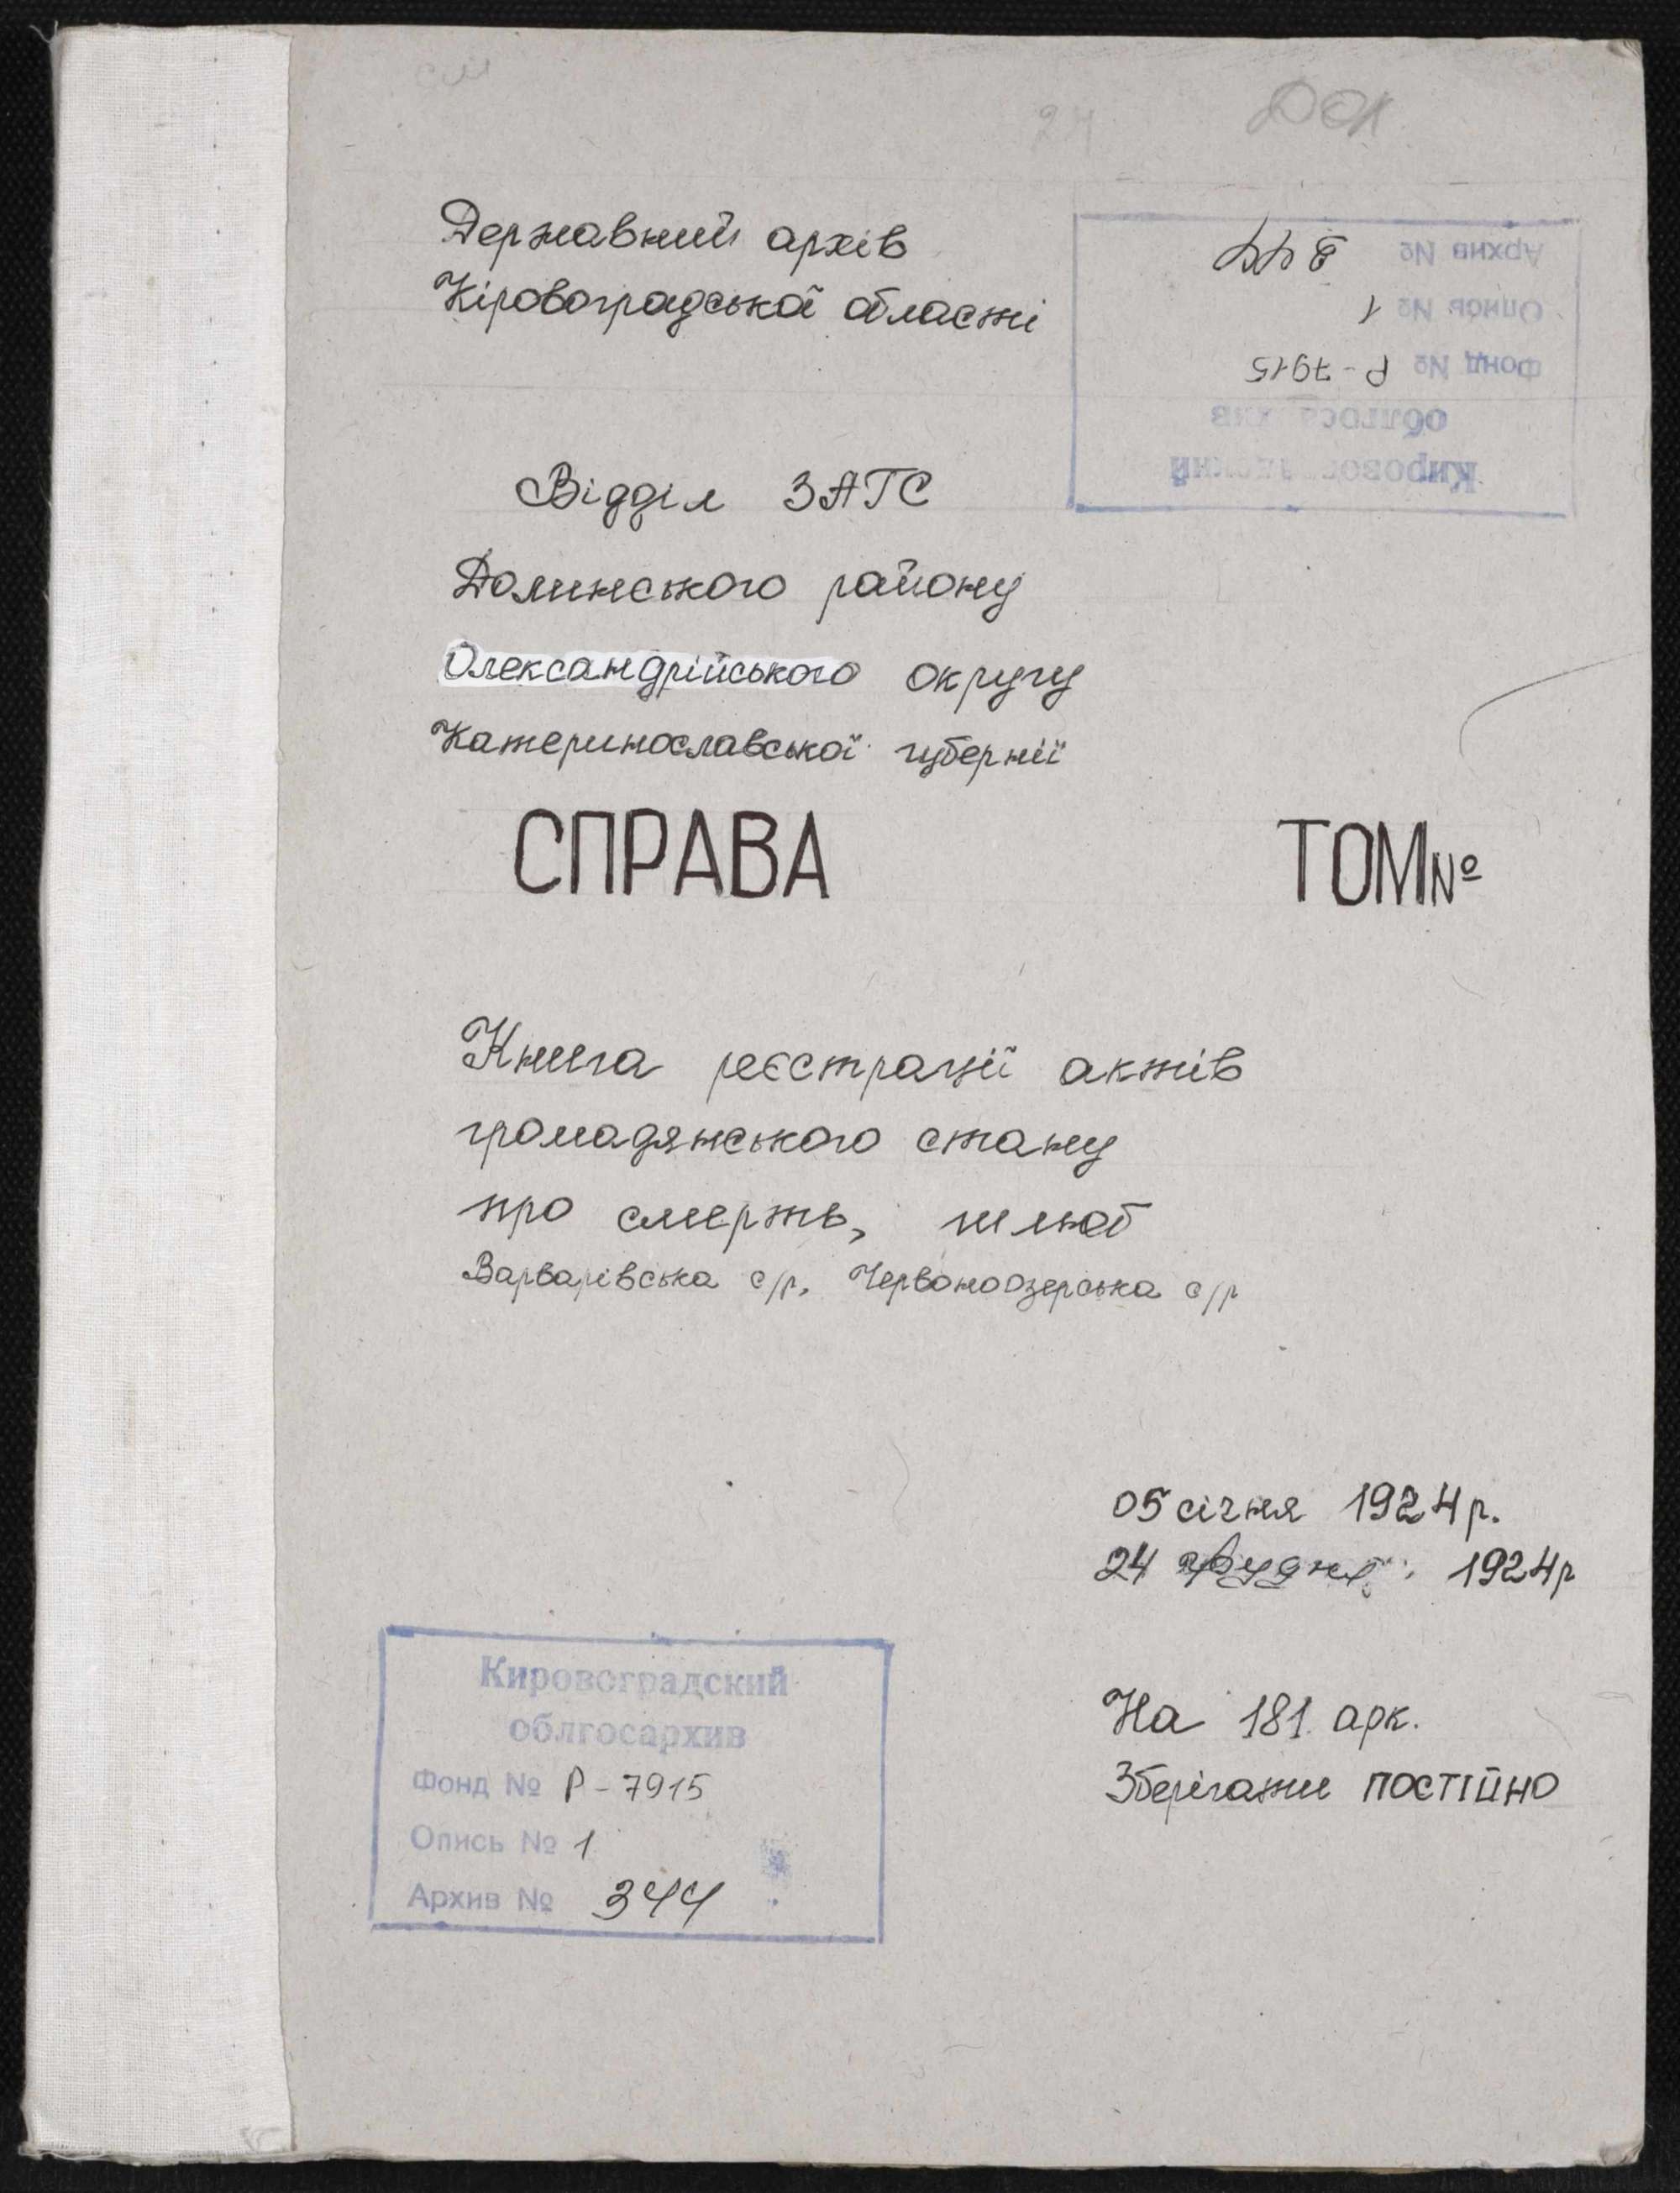 Док
Державний архів
Кіровоградської області
Кировоградский
облгосархив
Фонд № Р-7915
Опись № 1
Архив № 344
Відділ ЗАГС
Долинського району
Олександрійського округу
Катеринославської губернії
СПРАВА ТОМ №
Книга реєстрації актів
громадянського стану
про смерть, шлюб
Варварівська с/р, Червоноозерська с/р
05 січня 1924 р.
24 грудня 1924 р
На 181 арк.
Зберігати постійно
Кировоградский
облгосархив
Фонд № Р-7915
Опись № 1
Архив № 344